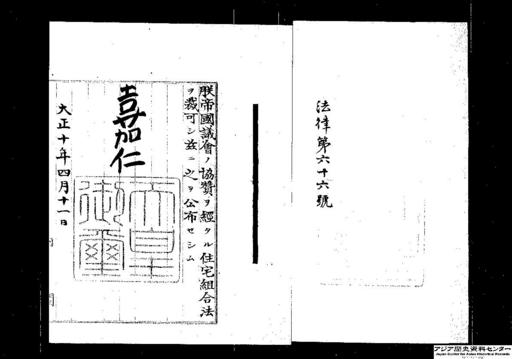 法律第六十六號
朕帝國議會ノ協贊ヲ經タル住宅組合法
ヲ裁可シ茲ニ之ヲ公布セシム
嘉仁
天皇御璽
大正十年四月十一日
アジア歴史資料センター
Japan Center for Asian Historical Records